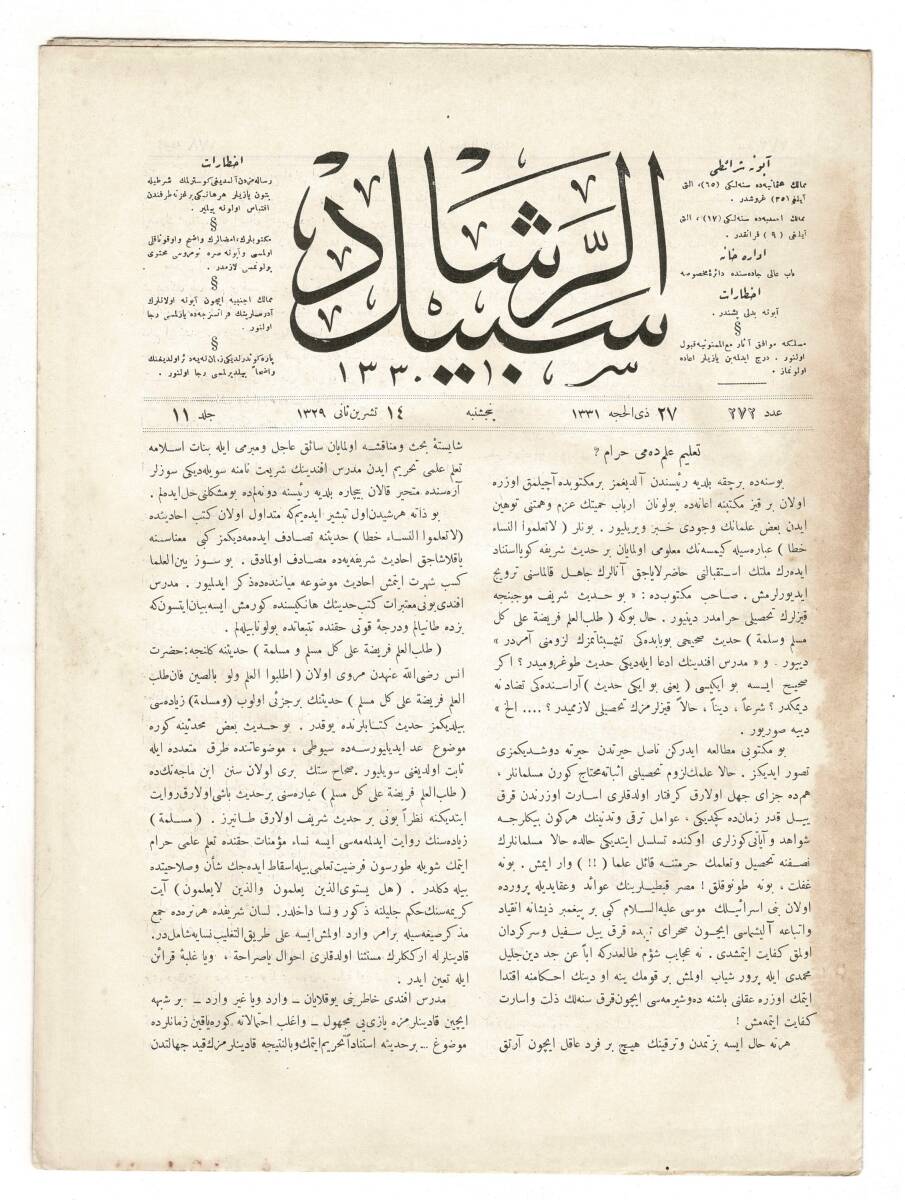 آبونه شرائطی
ممالك عثمانيه‌ده سنه‌لكی (٦٥)، التی
آیلغی (٣٥) غروشدر .
ممالك اجنبيه‌ده سنه‌لكی (١٧) ، التی
آیلغی ( ٩ ) فرانقدر .
اداره خانه
باب عالی جاده‌سنده دائرهٔ مخصوصه
اخطارات
آبونه بدلی پشیندر .
§
مسلكه موافق آثار مع الممنونیه قبول
اولنور . درج ایدلمه‌ین یازیلر اعاده
اولونماز .
سبيل الرشاد
١٣٣٠
اخطارات
رساله‌مزدن آلندیغی كوسترلمك شرطیله
بتون یازیلر هر هانكی بر غزته طرفندن
اقتباس اولونه بیلیر .
§
مكتوبلرك، امضالرك واضح و اوقوناقلی
اولمسی و آبونه صره نومروسی محتوی
بولونمسی لازمدر .
§
ممالك اجنبیه ایچون آبونه اولانلرك
آدرسلرینك فرانسزجه‌ده یازلمسی رجا
اولنور .
§
پاره كوندرلدیكی زمان نه‌یه دائر اولدیغنك
واضحاً بیلدیرلمسی رجا اولنور .
عدد ٢٧٢
٢٧ ذی الحجه ١٣٣١
پنجشنبه
١٤ تشرین ثانی ١٣٢٩
جلد ١١
تعلیم علم‌ده‌می حرام ؟
بوسنه‌ده برچقه بلدیه رئیسندن آلدیغمز بر مكتوبده آچیلمق اوزره
اولان بر قیز مكتبنه اعانه‌ده بولونان ارباب حمیتك عزم و همتنی توهین
ایدن بعض علمانك وجودی خبر ویریلیور . بونلر ( لاتعلموا النساء
خطا ) عباره‌سیله كیمسه‌نك معلومی اولمایان بر حدیث شریفه كویا استناد
ایده‌رك ملتك استقبالنی حاضرلایاجق آنالرك جاهل قالماسنی ترویج
ایدیورلرمش . صاحب مكتوب‌ده : « بو حدیث شریف موجبنجه
قیزلرك تحصیلی حرامدر دینیور . حال بوكه ( طلب العلم فريضة علی كل
مسلم ومسلمة ) حدیث صحیحی بوبابده‌كی تشبثاتمزك لزومنی آمردر »
دییور . و « مدرس افندینك ادعا ایله‌دیكی حدیث طوغرومیدر ؟ اكر
صحیح ایسه بو ایكیسی ( یعنی بو ایكی حدیث ) آراسنده‌كی تضاد نه
دیمكدر ؟ شرعاً ، دیناً ، حالاً قیزلرمزك تحصیلی لازمیدر ؟ .... الخ »
دییه صوریور .
بو مكتوبی مطالعه ایدركن ناصل حیرتدن حیرته دوشدیكمزی
تصور ایدیكز . حالا علمك لزوم تحصیلنی اثباته محتاج كورن مسلمانلر ،
هم‌ده جزای جهل اولارق كرفتار اولدقلری اسارت اوزرندن قرق
ییل قدر زمان‌ده كچدیكی ، عوامل ترقی و تدنینك هركون بیكلرجه
شواهد و آیاتی كوزلری اوكنده تسلسل ایتدیكی حالده حالا مسلمانلرك
نصفنه تحصیل و تعلمك حرمتنه قائل علما ( !! ) وار ایمش . بونه
غفلت ، بونه طونوقلق ! مصر قبطیلرینك عوائد و عقایدیله پرورده
اولان بنی اسرائیلك موسی علیه السلام كبی بر پیغمبر ذیشانه انقیاد
و اتباعه آلیشماسی ایچون صحرای تیهده قرق ییل سفیل و سركردان
اولمق كفایت ایتمشدی . نه عجایب شؤم طالعدركه اباً عن جد دین جلیل
محمدی ایله پرور شیاب اولمش بر قومك ینه او دینك احكامنه اقتدا
ایتمك اوزره عقلنی باشنه ده‌وشیرمه‌سی ایچون قرق سنه‌لك ذلت و اسارت
كفایت ایتمه‌مش !
هر نه حال ایسه بز تمدن و ترقینك هیچ بر فرد عاقل ایچون آرتق
شایستهٔ بحث و مناقشه اولمایان سائق عاجل و مبرمی ایله بنات اسلامه
تعلم علمی تحریم ایدن مدرس افندینك شریعت نامنه سویله‌دیكی سوزلر
آره‌سنده متحیر قالان بیچاره بلدیه رئیسنه دونه‌لم‌ده بو مشكلنی حل ایده‌لم .
بو ذاته هرشیدن اول تبشیر ایده‌یم كه متداول اولان كتب احادیثده
(لاتعلموا النساء خطا) حدیثنه تصادف ایده‌مه‌دیكمز كبی معناسننه
یاقلاشاجق احادیث شریفه‌یه‌ده مصادف اولمادق . بو سوز بین العلما
كسب شهرت ایتمش احادیث موضوعه میاننده‌ده ذكر ایدلمیور . مدرس
افندی بونی معتبرات كتب حدیثك هانكیسنده كورمش ایسه بیان ایتسون كه
بزده طانیالم و درجهٔ قوتی حقنده تتبعاتده بولونابیله‌لم .
( طلب العلم فريضة علی كل مسلم و مسلمة ) حدیثنه كلنجه: حضرت
انس رضی الله عنهدن مروی اولان ( اطلبوا العلم ولو بالصين فان طلب
العلم فريضة علی كل مسلم ) حدیثنك بر جزئی اولوب (ومسلمة) زیاده‌سی
بیلدیكمز حدیث كتابلرنده یوقدر . بو حدیث بعض محدثینه كوره
موضوع عد ایدیلیورسه‌ده سیوطی ، موضوعاتنده طرق متعدده ایله
ثابت اولدیغنی سویلیور . صحاح ستك بری اولان سنن ابن ماجه‌نك‌ده
( طلب العلم فريضة علی كل مسلم ) عباره‌سنی بر حدیث باشی اولارق روایت
ایتدیكنه نظراً بونی بر حدیث شریف اولارق طانیرز . ( مسلمة )
زیاده‌سنك روایت ایدلمه‌مسی ایسه نساء مؤمنات حقنده تعلم علمی حرام
ایتمك شویله طورسون فرضیت تعلمی بیله اسقاط ایده‌جك شأن و صلاحیتده
بیله دكلدر . ( هل يستوی الذين يعلمون والذين لايعلمون ) آیت
كریمه‌سنك حكم جلیلنه ذكور و نسا داخلدر . لسان شریفده هر نره‌ده جمع
مذكر صیغه‌سیله بر امر وارد اولمش ایسه علی طریق التغلیب نسایه شامل‌در.
قادینلرله ارككلرك مستثنا اولدقلری احوال یا صراحة ، و یا غلبهٔ قرائن
ایله تعین ایدر .
مدرس افندی خاطرینی یوقلایان ــ وارد و یا غیر وارد ــ بر شبهه
ایچین قادینلرمزه یازی‌یی مجهول ــ و اغلب احتمالاته كوره یاقین زمانلرده
موضوع ... بر حدیثه استناداً تحریم ایتمك و بالنتیجه قادینلرمزك قید جهالتدن